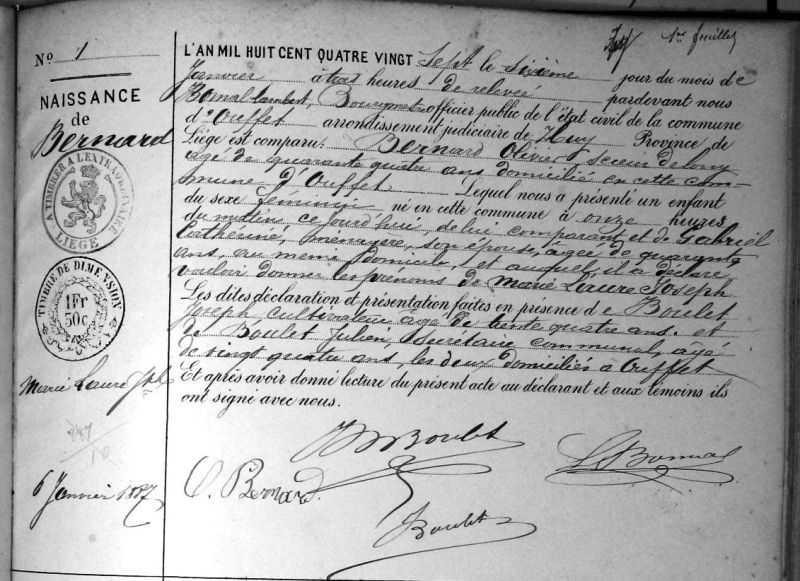 1er feuillet
No 1
NAISSANCE
de
Bernard
A TIMBRER A L'EXTRAORDINAIRE
LIEGE
TIMBRE DE DIMENSION
1Fr
50c
Marie Laure Jph
6 Janvier 1887
L'AN MIL HUIT CENT QUATRE VINGT Sept le sixième jour du mois de
Janvier à trois heures de relevée pardevant nous
Bonal Lambert, Bourgmestre officier public de l'état civil de la commune
d'Ouffet arrondissement judiciaire de Huy Province de
Liège est comparu: Bernard Olivier, scieur de long
âgé de quarante quatre ans domicilié en cette com-
mune d'Ouffet Lequel nous a présenté un enfant
du sexe féminin né en cette commune à onze heures
du matin ce jourd'hui, de lui comparant et de Gabriel
Cathérine, ménagère, son épouse, âgée de quarante
ans, au même domicile, et auquel il a déclaré
vouloir donner les prénoms de Marie Laure Joseph
Les dites déclaration et présentation faites en présence de Boulet
Joseph, cultivateur âgé de trente quatre ans. et
de Boulet Julien, Secrétaire communal, âgé
de vingt quatre ans, les deux domiciliés à Ouffet
Et après avoir donné lecture du présent acte au déclarant et aux témoins ils
ont signé avec nous.
Boulet
O. Bernard.
Boulet